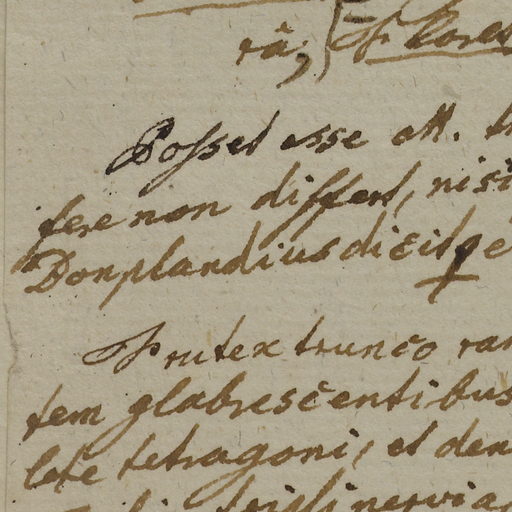 râ; Flores
Posset esse att.
fere non differt, nisi
Bonplandius dicit
Frutex trunco ram
tem glabrescentibus
lete tetragoni, et den
triplinervia